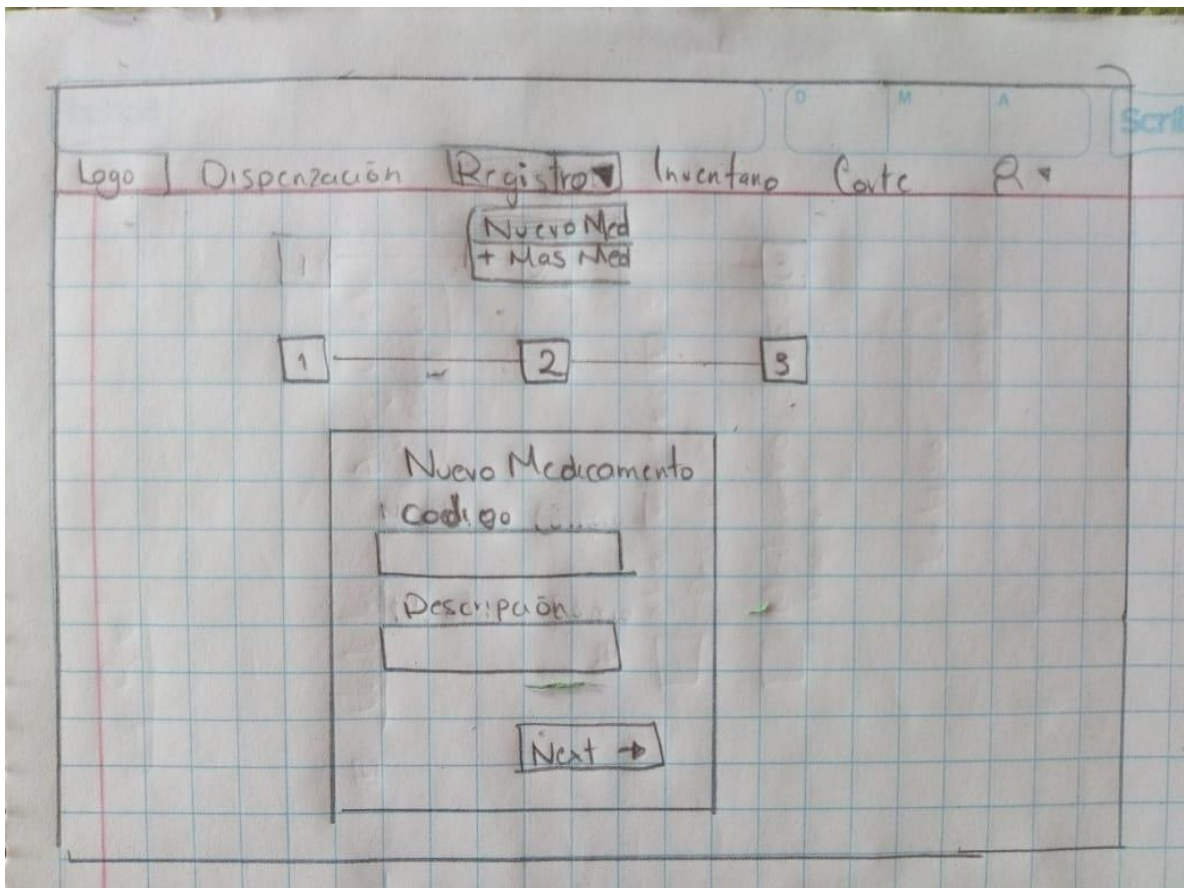 D M A
Scri
Logo Dispenzación Registro▼ Inventario Corte
Nuevo Med
+ Mas Med
1 2 3
Nuevo Medicamento
codigo
Descripción
Next →